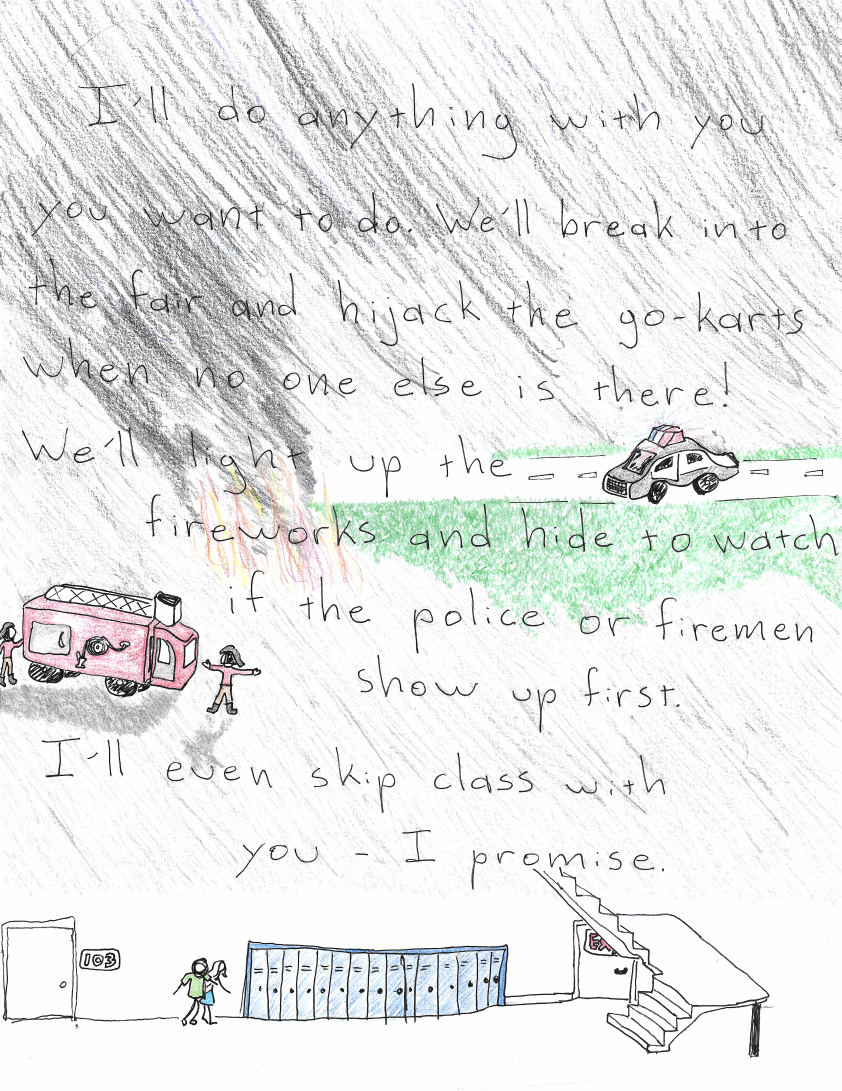 I'll do anything with you
you want to do. We'll break into
the fair and hijack the go-karts
when no one else is there!
We'll light up the
fireworks and hide to watch
if the police or firemen
show up first.
I'll even skip class with
you - I promise.
103
EX